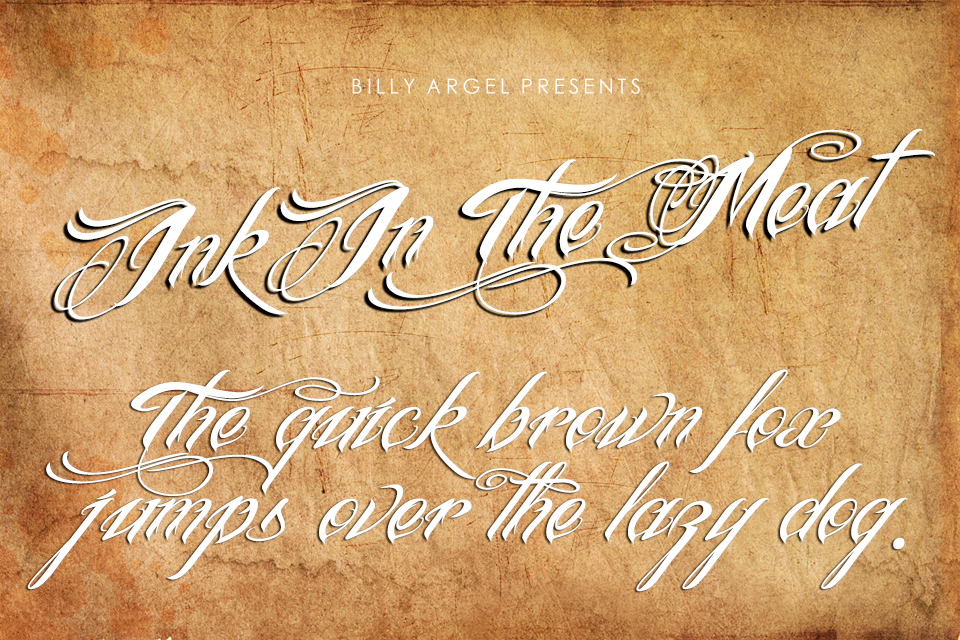 BILLY ARGEL PRESENTS
Ink In The Meat
The quick brown fox
jumps over the lazy dog.